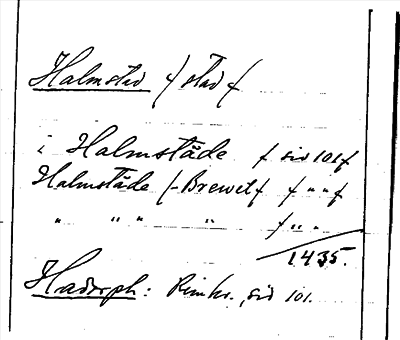 Halmstad /stad/
i Halmstäde / sid 101/
Halmstäde /-Brewet/ / " " /
" " " " / " "
1435.
Hadorph: Rimkr. sid 101.